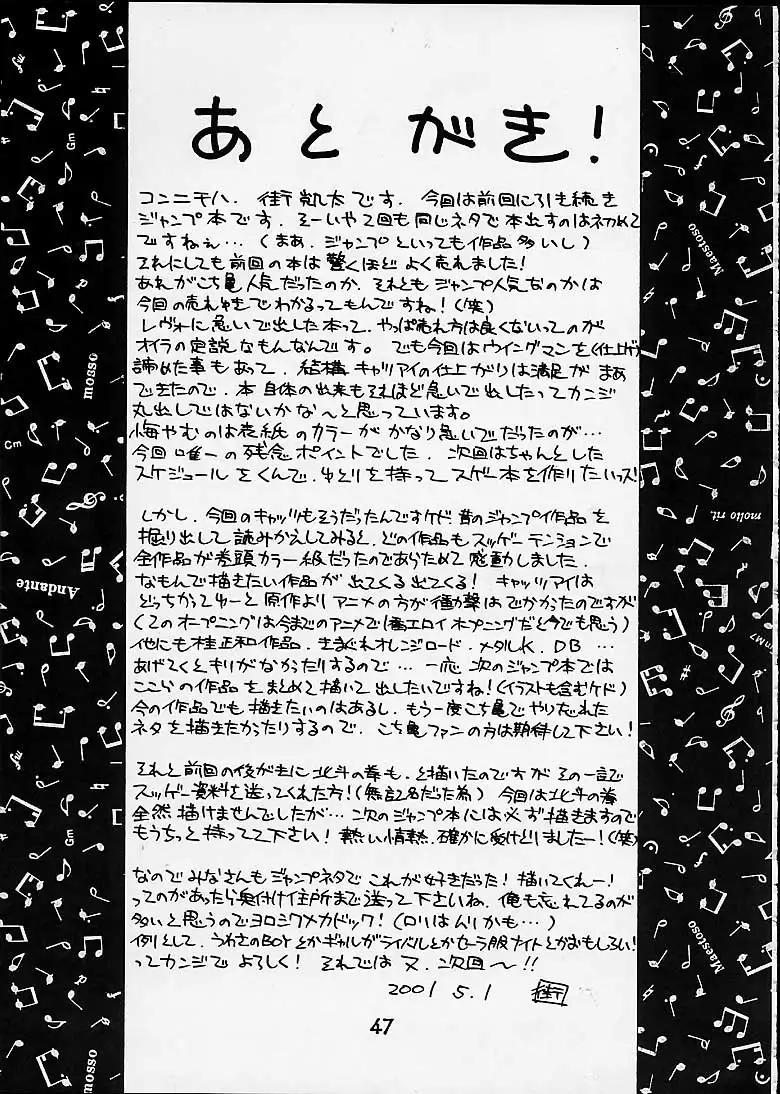 あとがき!
コンニチハ、街凱太です。今回は前回に引き続き
ジャンプ本です。そーいや2回も同じネタで本出すのは初めて
ですねぇ…(まあ、ジャンプといっても作品多いし)
それにしても前回の本は驚くほどよく売れました!
あれがこち亀人気だったのか、それともジャンプ人気なのかは
今回の売れゆきでわかるってもんですね!(笑)
レヴォに急いで出した本って、やっぱ売れ方は良くないってのが
オイラの定説なもんなんです。でも今回はウイングマンを(仕上げ)
諦めた事もあって、結構キャッツアイの仕上がりは満足がまあ
できたので、本自体の出来もそれほど急いで出したってカンジ
丸出しではないかな〜と思っています。
悔やむのは表紙のカラーがかなり急いでだったのが…
今回唯一の残念ポイントでした。次回はちゃんとした
スケジュールをくんで、ゆとりを持ってスゲー本を作りたいっス!
しかし、今回のキャッツもそうだったんですケド昔のジャンプ作品を
掘り出して読みかえしてみると、どの作品もスッゲーテンションで
全作品が巻頭カラー級だったのであらためて感動しました。
なもんで描きたい作品が出てくる出てくる!キャッツアイは
どっちかってゆーと原作よりアニメの方が衝撃はでかかったのですが
(2のオープニングは今までのアニメで1番エロイオープニングだと今でも思う)
他にも桂正和作品、きまぐれオレンジロード、メタルK、DB…
あげてくとキリがなかったりするので…一応次のジャンプ本では
ここらの作品をまとめて描いて出したいですね!(イラストも含むケド)
今の作品でも描きたいのはあるし、もう一度こち亀でやりたかった
ネタを描きたかったりするので、こち亀ファンの方は期待して下さい!
それと前回の後がきに北斗の拳も、と描いたのですがその一言で
スッゲー資料を送ってくれた方!(無記名だった為)今回は北斗の拳
全然描けませんでしたが…次のジャンプ本には必ず描きますので
もうちっと待ってて下さい!熱い情熱、確かに受けとりましたー!(笑)
なのでみなさんもジャンプネタでこれが好きだった!描いてくれー!
ってのがあったら奥付け住所まで送って下さいね、俺も忘れてるのが
多いと思うのでヨロシクメカドック!
例として、うわさのBOYとかギャルがライバルとかセーラ服ナイトとかおもしろい!
ってカンジでよろしく!それでは又、次回〜!!
2001 5.1 街
47
mosso
Gm
Cm
Andante
Maestoso
molto rit.